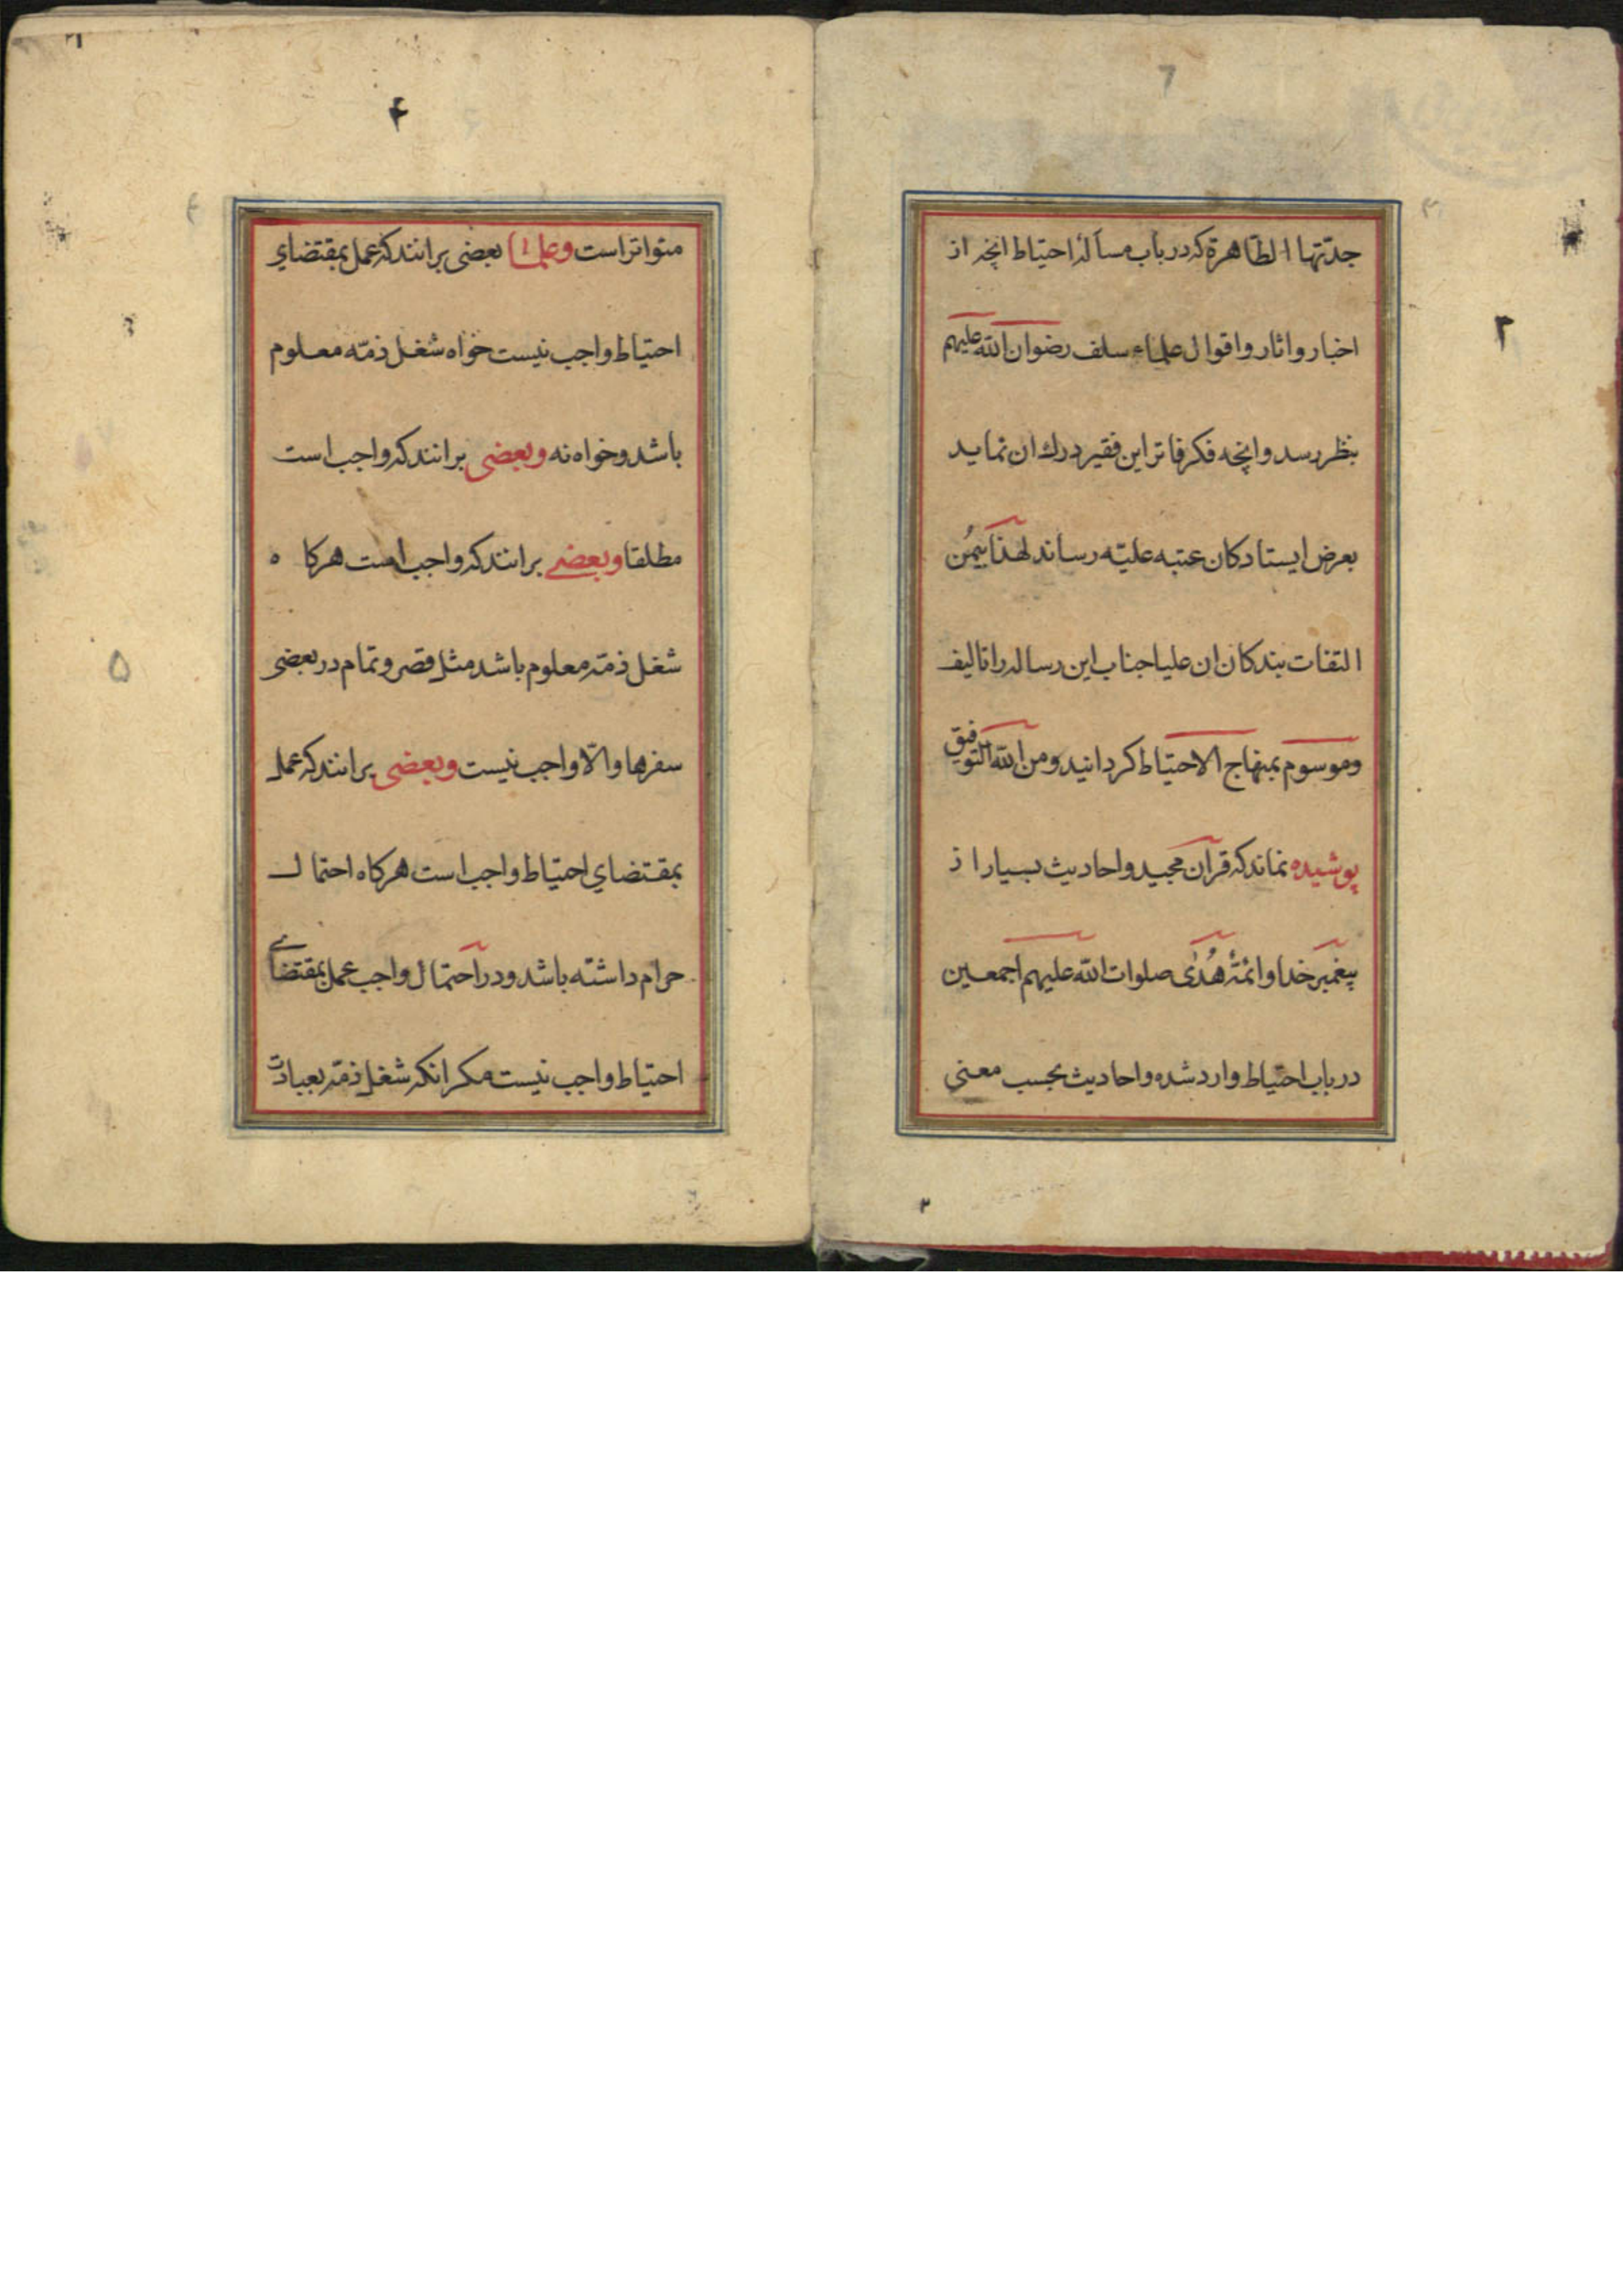 جدّتها الطّاهرة که در باب مسألهٔ احتیاط انچه از
اخبار و اثار و اقوال علماء سلف رضوان الله علیهم
بنظر رسد و انچه فکر فاتر این فقیر درك ان نماید
بعرض ایستادکان عتبه علیّه رساند لهذا بیُمن
التفات بندکان ان علیا جناب این رساله را تالیف
وموسوم بمنهاج الاحتیاط کردانید ومن الله التوفیق
پوشیده نماند که قرآن مجید و احادیث بسیار از
پیغمبر خدا و ائمّهٔ هُدٰی صلوات الله علیهم اجمعین
در باب احتیاط وارد شده و احادیث بحسب معنی
۲
متواتر است وعلما بعضی برانند که عمل بمقتضاي
احتیاط واجب نیست خواه شغل ذمّه معلوم
باشد و خواه نه وبعضی برانند که واجب است
مطلقا وبعضے برانند که واجب است هرکاه
شغل ذمّه معلوم باشد مثل قصر و تمام در بعضی
سفرها والّا واجب نیست وبعضی برانند که عمل
بمقتضاي احتیاط واجب است هرکاه احتمال
حرام داشته باشد و در احتمال واجب عمل بمقتضاے
احتیاط واجب نیست مکر انکه شغل ذمّه بعبادت
۴
۵